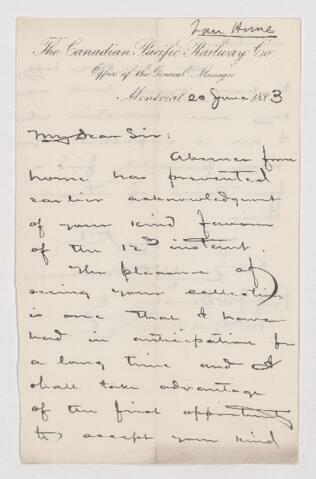 Van Horne
The Canadian Pacific Railway Co.
Office of the General Manager
Montreal 20 June 1883
My Dear Sir:
Absence from
home has prevented
earlier acknowledgment
of your kind favour
of the 12th instant.
The pleasure of
seeing your collection
is one that I have
had in anticipation for
a long time and I
shall take advantage
of the first opportunity
to accept your kind